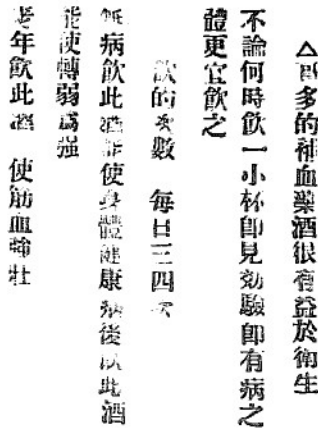 △哥多的補血藥酒很有益於衛生
不論何時飲一小杯即見効驗即有病之
體更宜飲之
飲的次數 每日三四次
病飲此酒能使身體健康病後飲此酒
能使轉弱爲强
老年飲此酒 使筋血壯